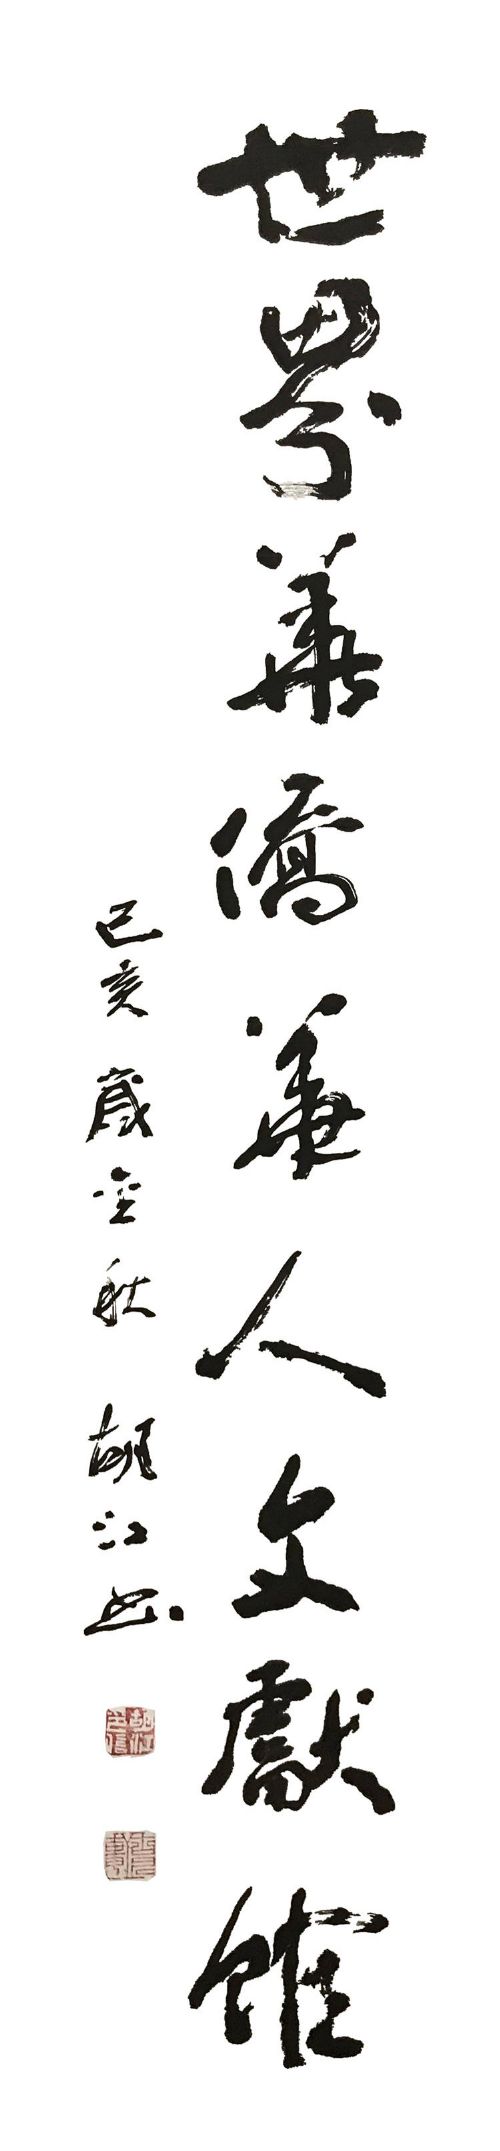 世界華僑華人文獻館
己亥歲金秋 胡江書